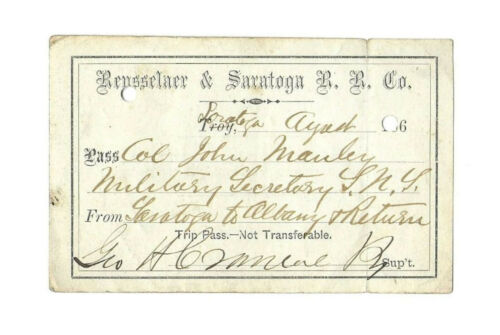 Rensselaer & Saratoga R. R. Co.
Saratoga Troy, August 186
Pass Col John Manley
Military Secretary S. N. Y.
From Saratoga to Albany & Return
Trip Pass.—Not Transferable.
Geo H Sup't.